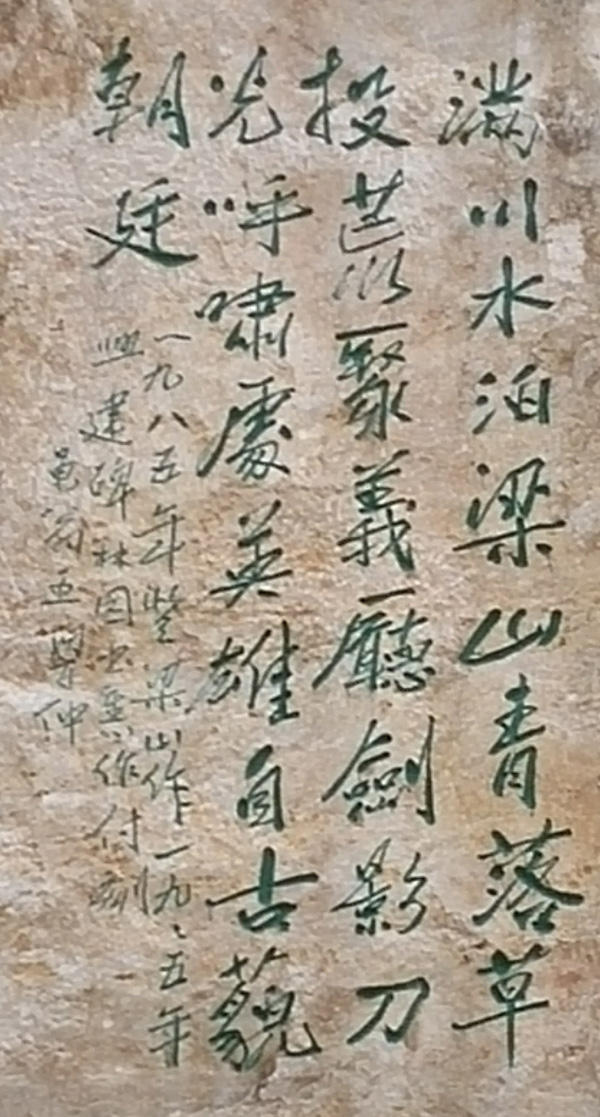 滿川水泊梁山青落草
投荒聚義廳劍影刀
光呼嘯處英雄自古藐
朝廷
一九八五年登梁山作一九、五年
興建碑林因书舊作付刻
黾翁王學仲